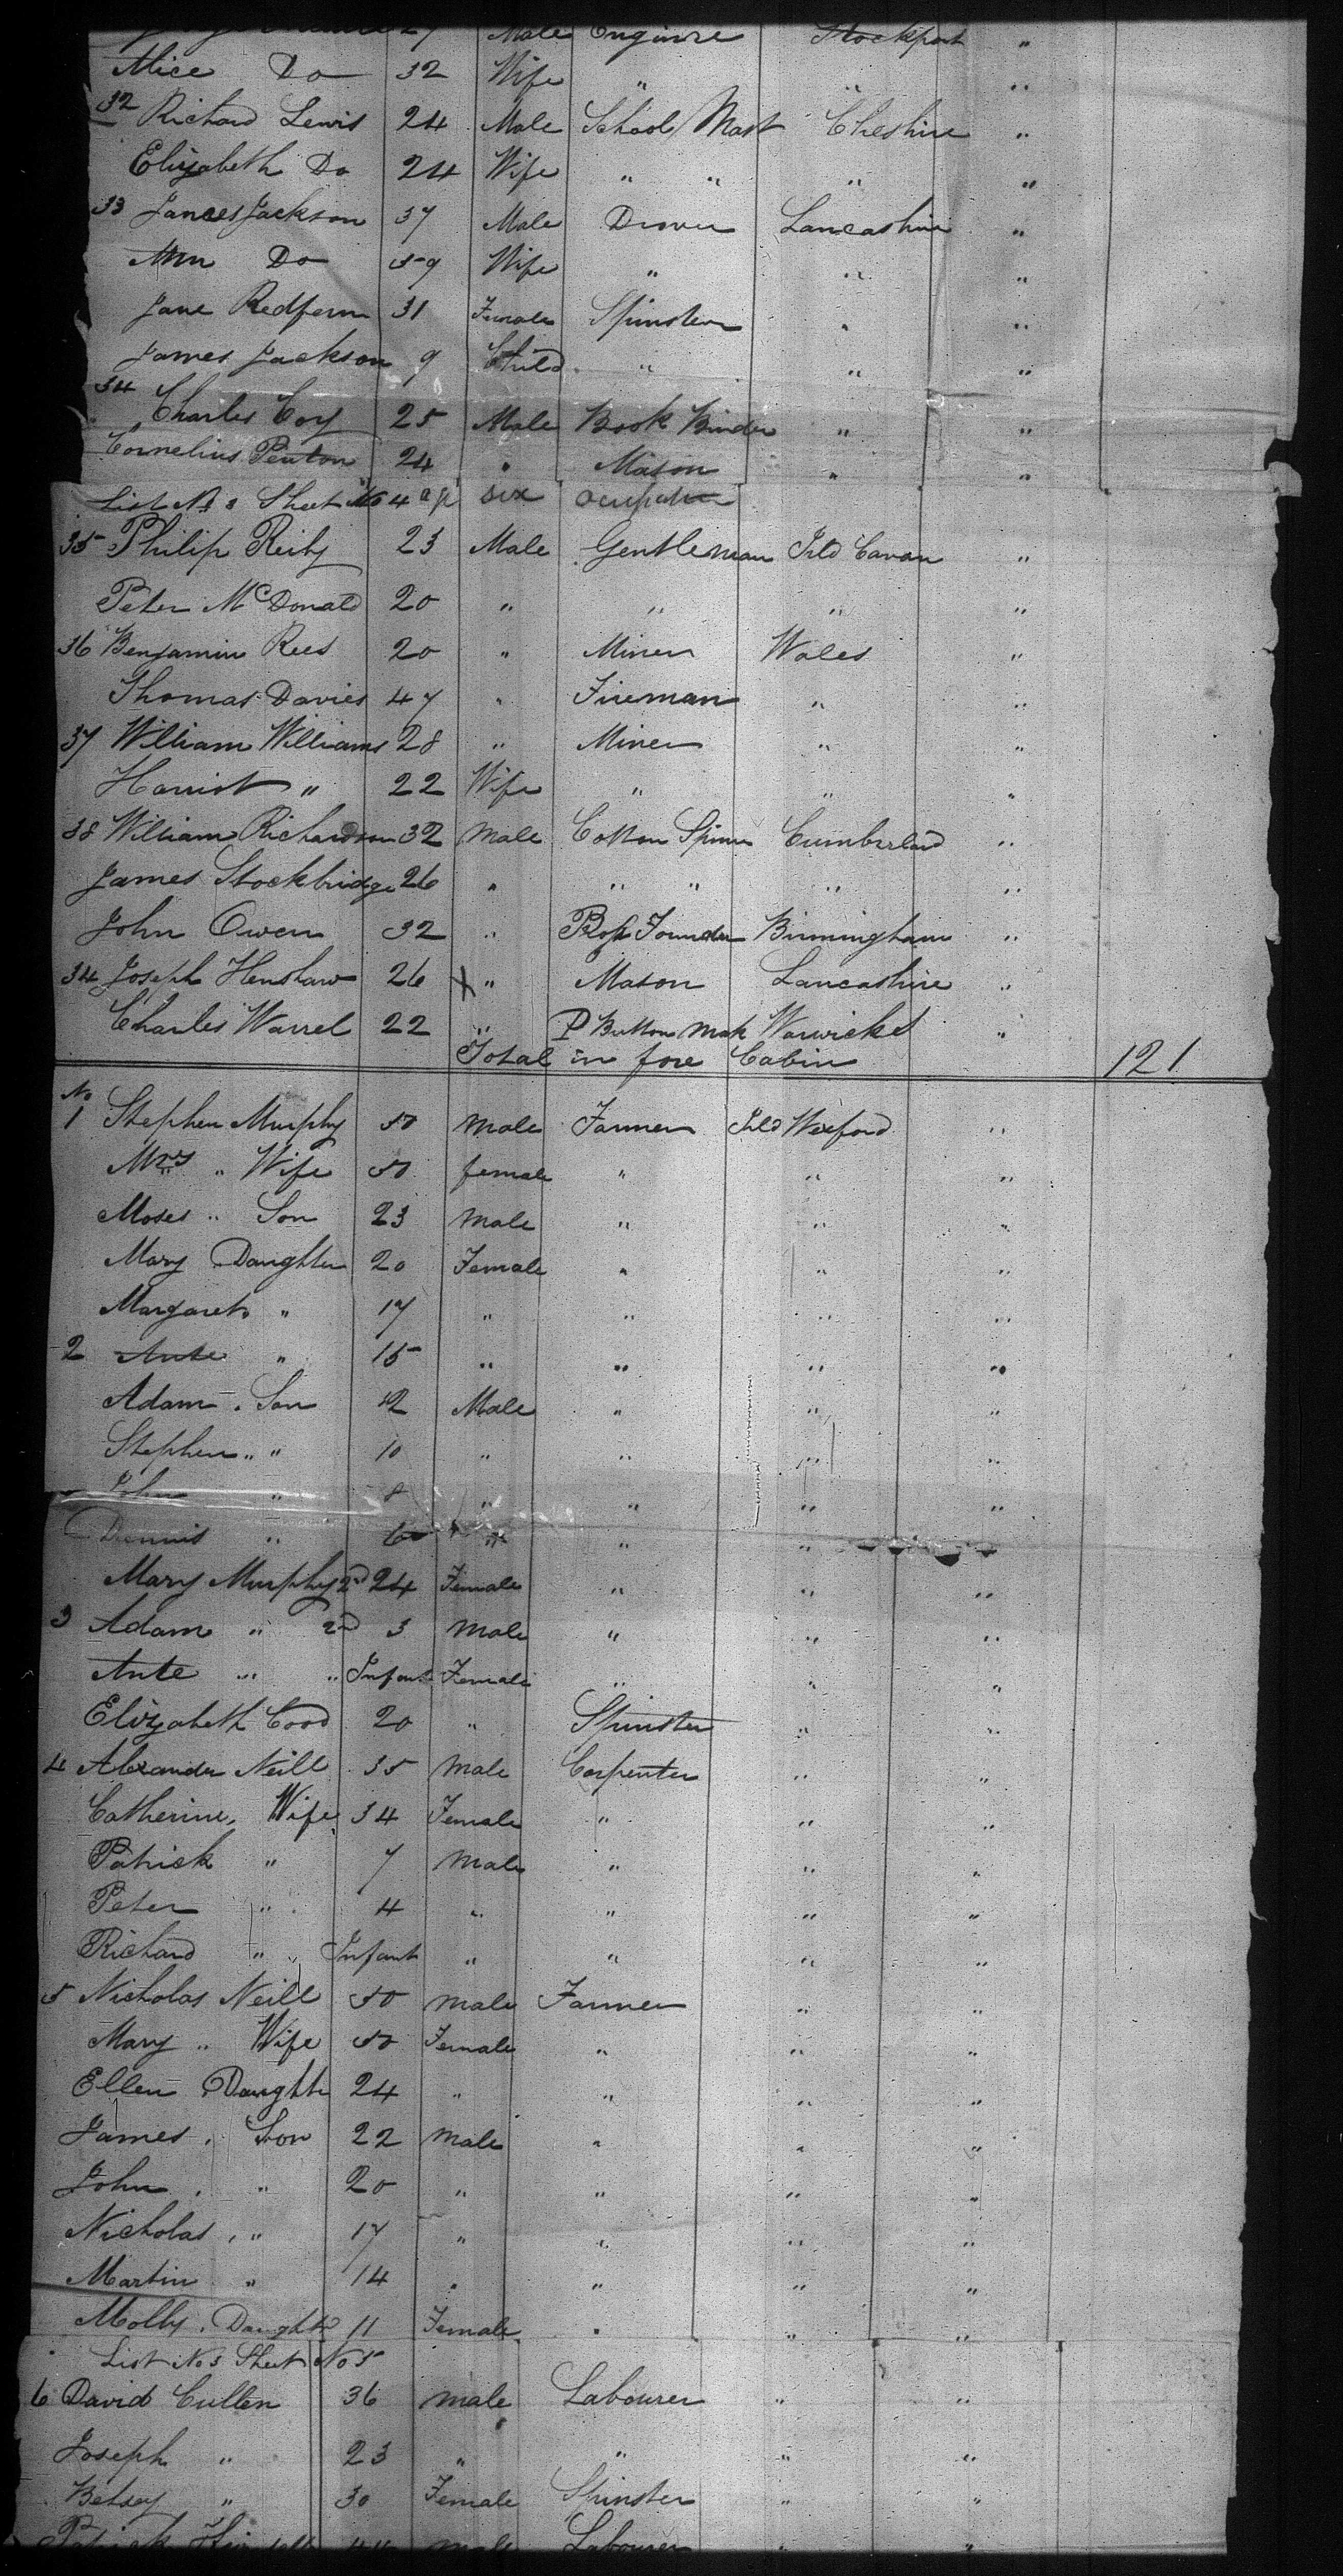 Male Engineer Stockport "
Alice Do 32 Wife " " "
32 Richard Lewis 24 Male School Mast Cheshire "
Elizabeth Do 24 Wife " " " "
33 James Jackson 37 Male Drover Lancashire "
Ann Do 59 Wife " " "
Jane Redfern 31 Female Spinster " "
James Jackson 9 Child " " "
34 Charles Coy 25 Male Book Binder " "
Cornelius Penton 24 " Mason " "
List No 3 Sheet No 4 age sex ocupation
35 Philip Reily 23 Male Gentleman Irld Cavan "
Peter McDonald 20 " " " "
36 Benjamin Rees 20 " Miner Wales "
Thomas Davies 47 " Fireman " "
37 William Williams 28 " Miner " "
Harriot " 22 Wife " " "
38 William Richardson 32 Male Cotton Spinner Cumberland "
James Stockbridge 26 " " " " "
John Owen 32 " Founder Birmingham "
34 Joseph Henshaw 26 x " Mason Lancashire "
Charles Warrel 22 " P Button Mak Warwicks "
Total in fore Cabin 121
No
1 Stephen Murphy 50 Male Farmer Irld Wexford "
Mrs " Wife 50 female " " "
Moses " Son 23 Male " " "
Mary Daughter 20 Female " " "
Margaret " 17 " " " "
2 Ante " 15 " " " "
Adam " Son 12 Male " " "
Stephen " " 10 " " " "
John " 8 " " " "
Dennis " 6 " " " "
Mary Murphy 2d 24 Female " " "
3 Adam " 2d 3 Male " " "
Ante " " Infant Female " " "
Elizabeth Cood 20 " Spinster " "
4 Alexander Neill 35 Male Carpenter " "
Catherine " Wife 34 Female " " "
Patrick " 7 Male " " "
Peter " 4 " " " "
Richard " Infant " " " "
5 Nicholas Neill 50 Male Farmer " "
Mary " Wife 50 Female " " "
Ellen Daughtr 24 " " " "
James " Son 22 Male " " "
John " " 20 " " " "
Nicholas " " 17 " " " "
Martin " 14 " " " "
Molly " Daughtr 11 Female " " "
List No 3 Sheet No 5
6 David Cullen 36 Male Labourer " "
Joseph " 23 " " " "
Betsey " 30 Female Spinster " "
Patrick 44 Male Labourer " "